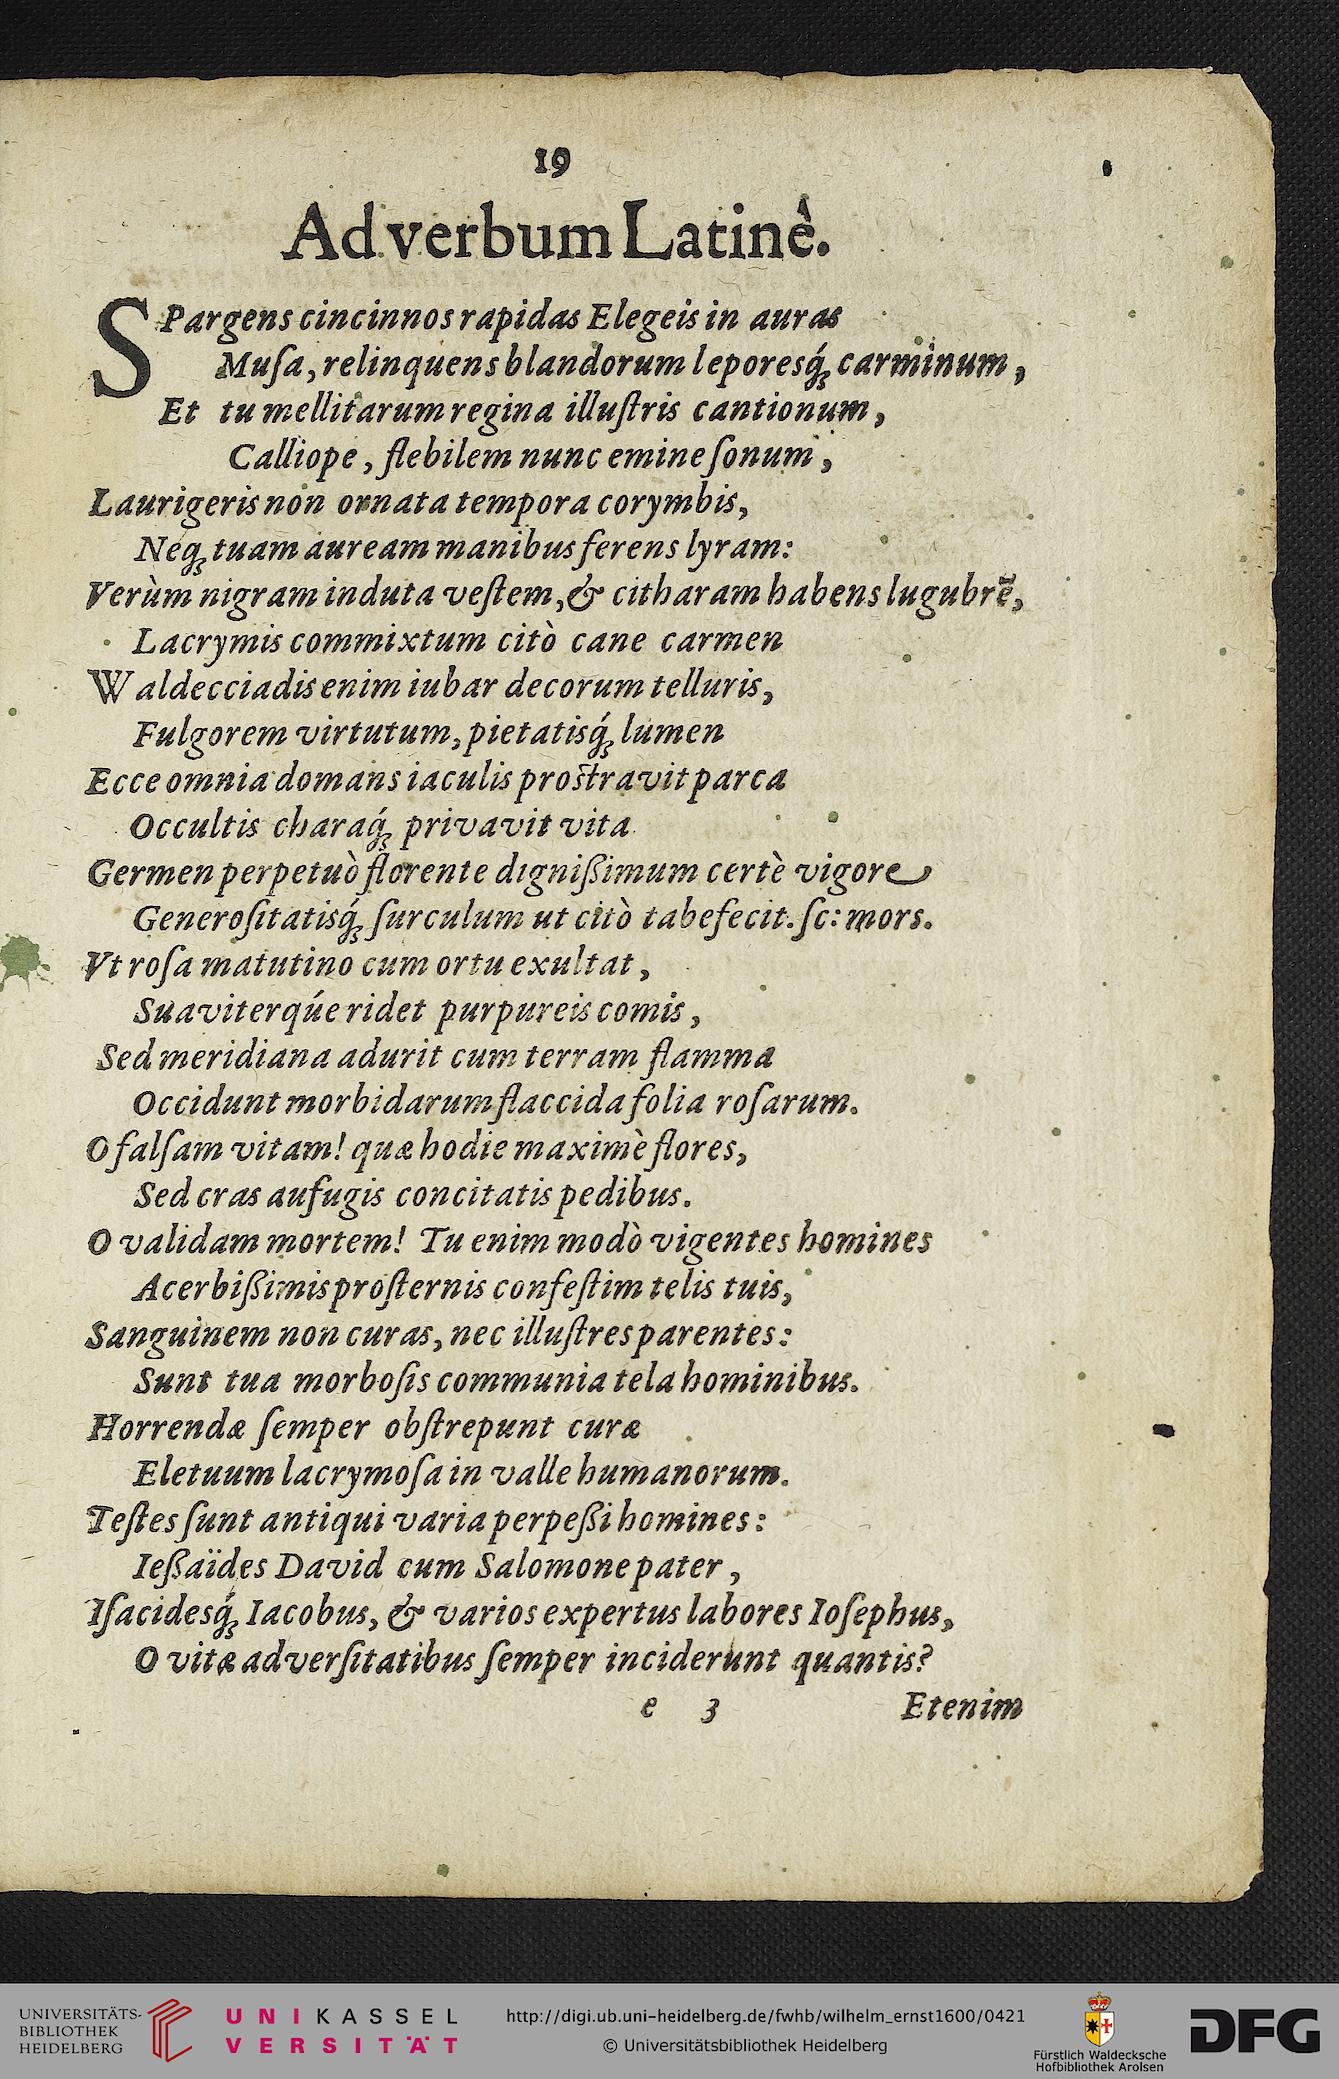 19
Ad verbum Latinè.
SPargens cincinnos rapidas Elegeis in auras
Muſa, relinquens blandorum leporesq́ꝫ carminum,
Et tu mellitarum regina illuſtris cantionum,
Calliope, flebilem nunc emine ſonum,
Laurigeris non ornata tempora corymbis,
Neqꝫ tuam auream manibus ferens lyram:
Verùm nigram induta veſtem, & citharam habens lugubrē,
Lacrymis commixtum citò cane carmen
Waldecciadis enim iubar decorum telluris,
Fulgorem virtutum, pietatisq́ꝫ lumen
Ecce omnia domans iaculis proſtravit parca
Occultis charaq́ꝫ privavit vita
Germen perpetuò florente dignißimum certè vigore
Generoſitatisq́ꝫ ſurculum ut citò tabefecit. ſc: mors.
Vt roſa matutino cum ortu exultat,
Suaviterq́ue ridet purpureis comis,
Sed meridiana adurit cum terram flamma
Occidunt morbidarum flaccida folia roſarum.
O falſam vitam! quæ hodie maximè flores,
Sed cras aufugis concitatis pedibus.
O validam mortem! Tu enim modò vigentes homines
Acerbißimis proſternis confeſtim telis tuis,
Sanguinem non curas, nec illuſtres parentes:
Sunt tua morboſis communia tela hominibus.
Horrendæ ſemper obſtrepunt curæ
Eletuum lacrymoſa in valle humanorum.
Teſtes ſunt antiqui varia perpeßi homines:
Ießaïdes David cum Salomone pater,
Iſacidesq́ꝫ Iacobus, & varios expertus labores Ioſephus,
O vitæ adverſitatibus ſemper inciderunt quantis?
e 3 Etenim
UNIVERSITÄTS-
BIBLIOTHEK
HEIDELBERG
UNIKASSEL
VERSITÄT
http://digi.ub.uni-heidelberg.de/fwhb/wilhelm_ernst1600/0421
© Universitätsbibliothek Heidelberg
Fürstlich Waldecksche
Hofbibliothek Arolsen
DFG